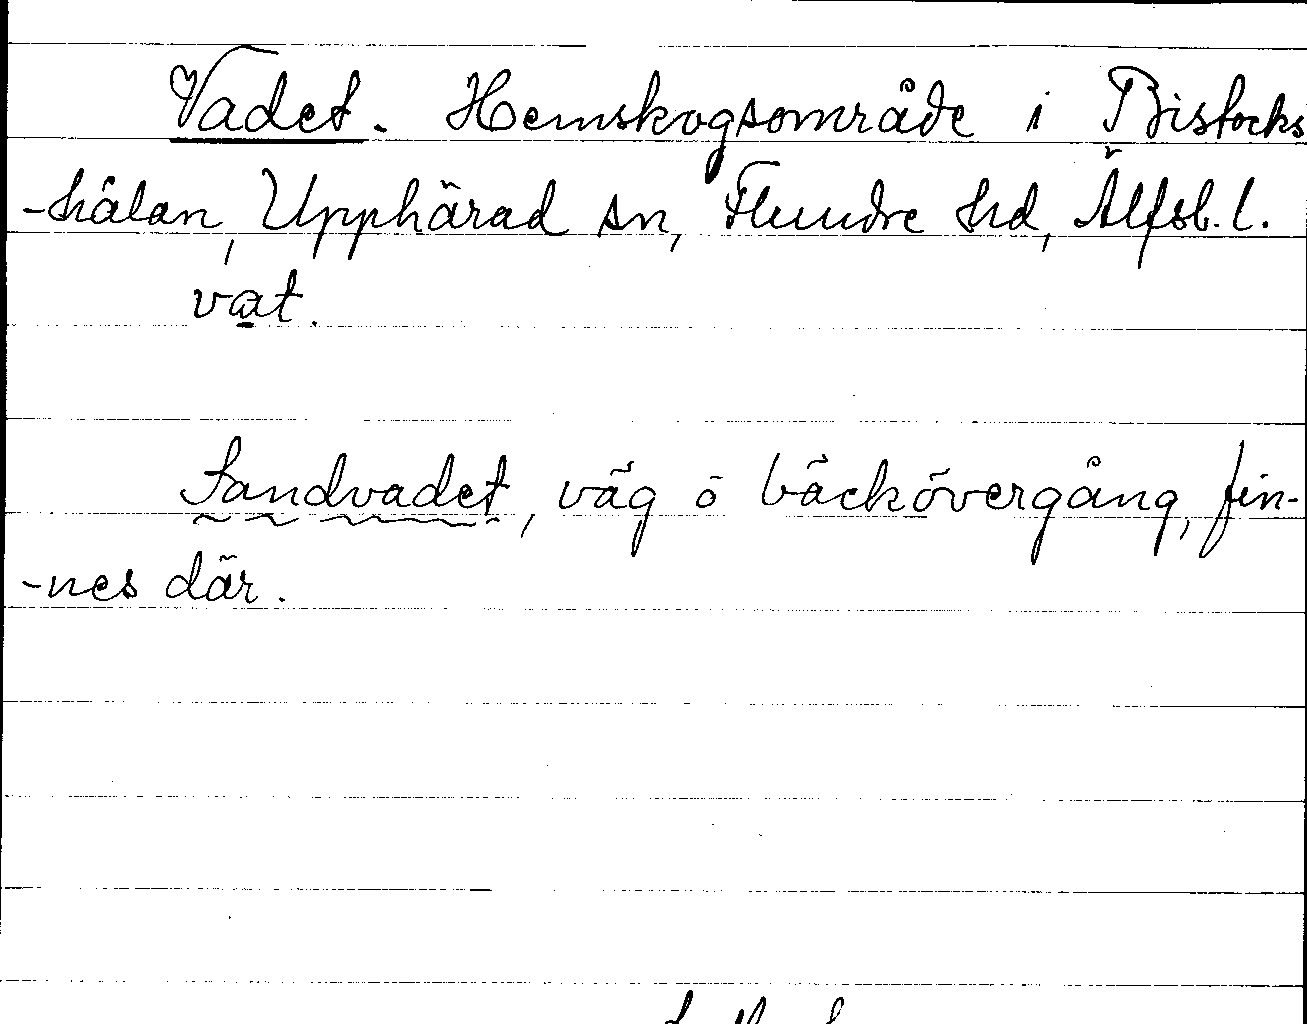 Vadet. Hemskogsområde i Bistocks
-hålan, Upphärad sn, Flundre hd, Älfsb. l.
vat.
Sandvadet, väg ö bäckövergång, fin-
-nes där.